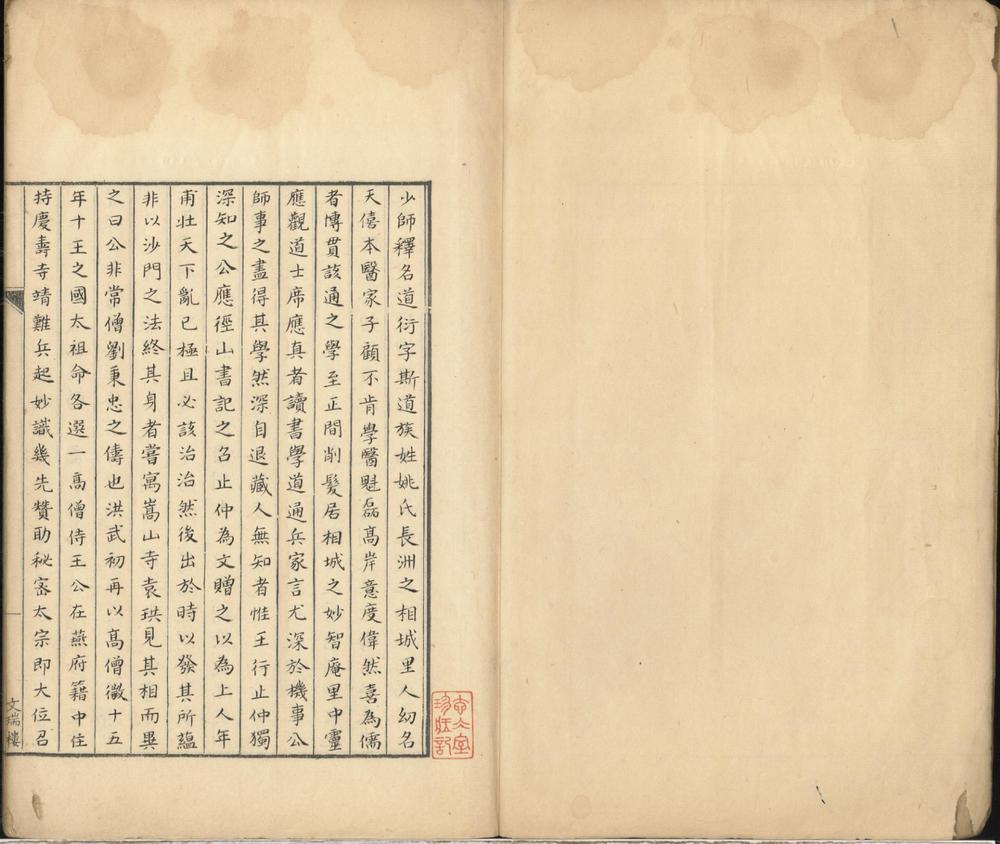 少師釋名道衍字斯道族姓姚氏長洲之相城里人幼名
天僖本醫家子顧不肯學醫魁磊髙岸意度偉然喜為儒
者博貫該通之學至正間削髮居相城之妙智庵里中靈
應觀道士席應真者讀書學道通兵家言尤深於機事公
師事之盡得其學然深自退藏人無知者惟王行止仲獨
深知之公應徑山書記之召止仲為文贈之以為上人年
甫壯天下亂已極且必該治治然後出於時以發其所蘊
非以沙門之法終其身者嘗寓嵩山寺袁珙見其相而異
之曰公非常僧劉秉忠之儔也洪武初再以髙僧徵十五
年十王之國太祖命各選一髙僧侍王公在燕府籍中住
持慶壽寺靖難兵起妙識幾先贊助秘密太宗即大位召
文瑞樓